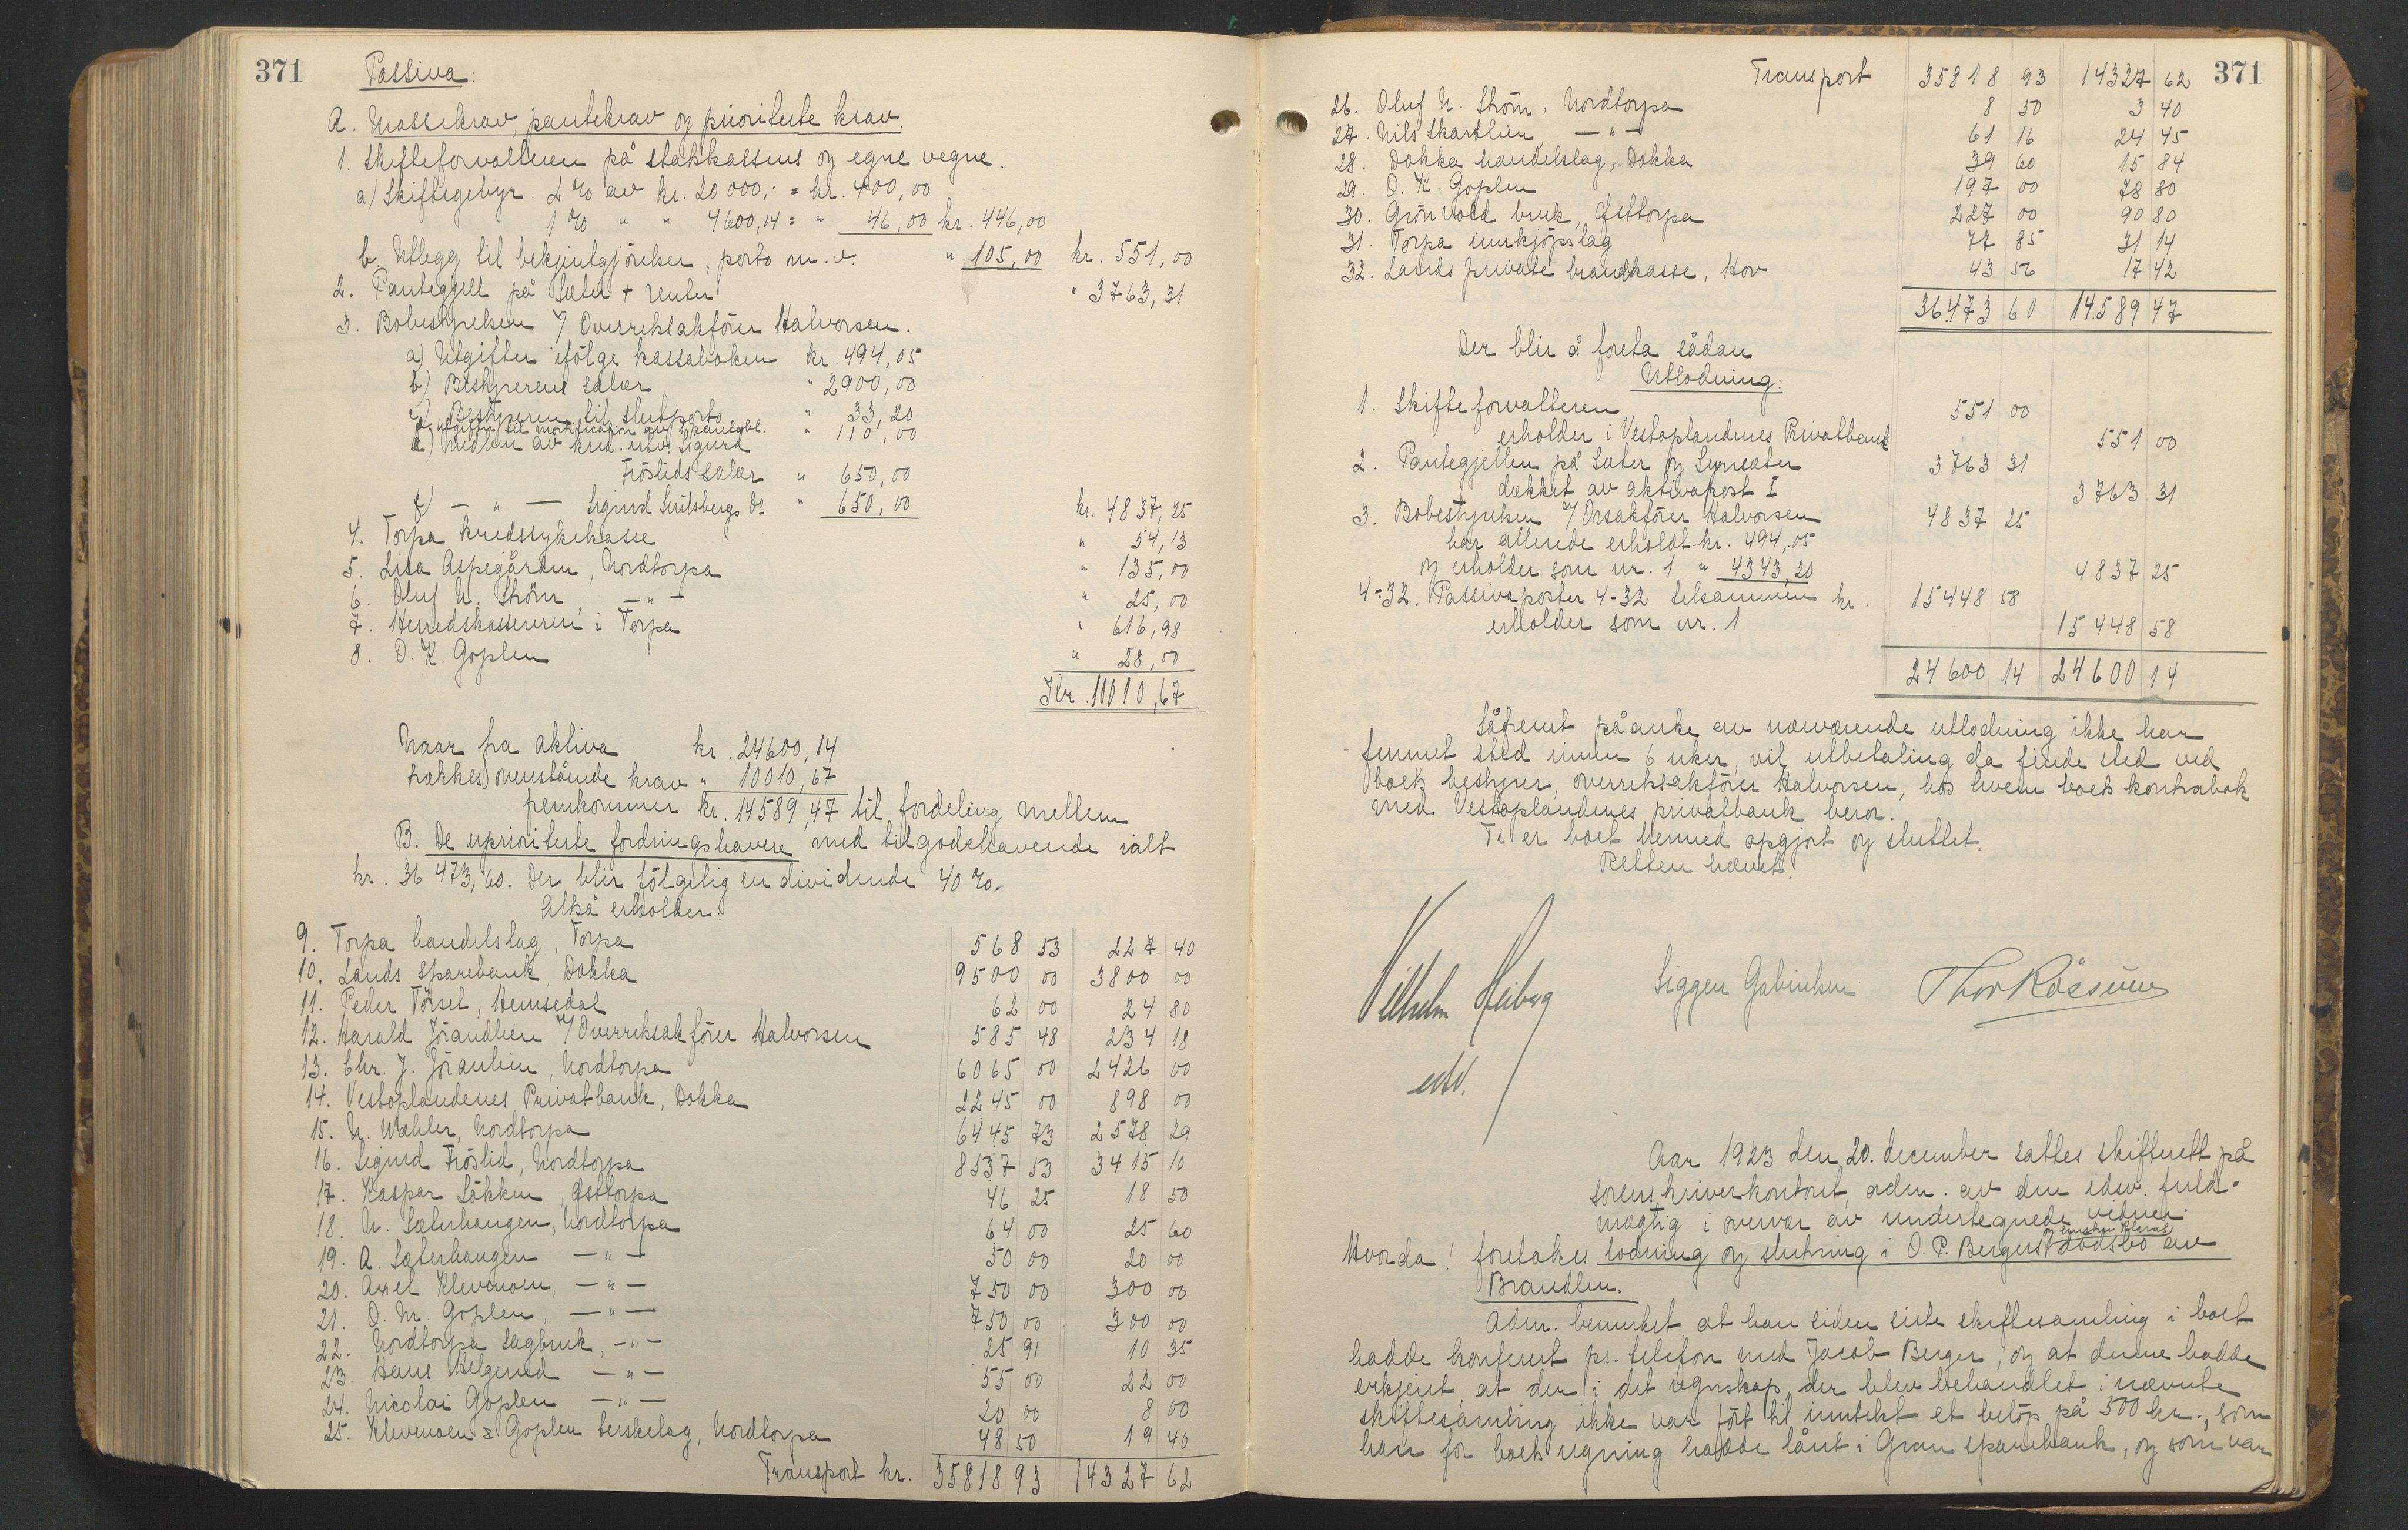 371 Passiva:
A. Massekrav, pantekrav og prioriterte krav.
1. Skifteforvalteren på statskassens og egne vegne.
a) Skiftegebyr. 2 % av kr. 20 000,- = kr. 400,00
1 % " " 4600,14 = " 46,00 kr. 446,00
b. Utlegg til bekjentgjörelser, porto m.v. " 105,00 kr. 551,00
2. Pantegjeld på Sæter + renter " 3763,31
3. Bobestyrelsen v/ Overretssakfører Halvorsen.
a) Utgifter ifölge kassaboken kr. 494,05
b) Bestyrerens salær " 2900,00
c) Bestyreren til slutporto " 33,20
d. utgifter til mortifikation av 1 panteobl. " 110,00
e) Medlem av kred. utv. Sigurd
Fröslids salær " 650,00
f) — " — Sigurd do " 650,00 kr. 4837,25
4. Torpa kredssykekasse " 54,13
5. Lisa Aspegården, Nordtorpa " 135,00
6. Oluf N. Ström, — " — " 25,00
7. Herredskassereren i Torpa " 616,98
8. O. K. Goplen " 28,00
Kr. 10010,67
Naar fra aktiva kr. 24600,14
trækkes ovenstående krav " 10010,67
fremkommer kr. 14589,47 til fordeling mellem
B. De uprioriterte fordringshavere med tilgodehavende ialt
kr. 36 473,60. Der blir fölgelig en dividende 40 %.
Altså erholder:
9. Torpa handelslag, Torpa 568 53 227 40
10. Lands Sparebank, Dokka 9500 00 3800 00
11. Peder Törsel, Hemsedal 62 00 24 80
12. Harald Jörandlien v/ Overretssakförer Halvorsen 585 48 234 18
13. Chr. J. Jöranlien, Nordtorpa 6065 00 2426 00
14. Vestoplandenes Privatbank, Dokka 2245 00 898 00
15. N. Wæhler, Nordtorpa 6445 73 2578 29
16. Sigurd Fröslid, Nordtorpa 8537 53 3415 10
17. Kaspar Lökken, Østtorpa 46 25 18 50
18. N. Sæterhaugen, Nordtorpa 64 00 25 60
19. A. Sæterhaugen — " — 50 00 20 00
20. Axel Klevmoen, — " — 750 00 300 00
21. O. M. Goplen, — " — 750 00 300 00
22. Nordtorpa sagbruk, — " — 25 91 10 35
23. Hans Helgerud — " — 55 00 22 00
24. Nicolai Goplen — " — 20 00 8 00
25. Klevmoen & Goplen terskelag, Nordtorpa 48 50 19 40
Transport kr. 35818 93 14327 62
Transport 35818 93 14327 62 371
26. Oluf N. Ström, Nordtorpa 8 50 3 40
27. Nils Skartlien — " — 61 16 24 45
28. Dokka handelslag, Dokka 39 60 15 84
29. O. K. Goplen 197 00 78 80
30. Grönvold bruk, Østtorpa 227 00 90 80
31. Torpa innkjöpslag 77 85 31 14
32. Lands private brandkasse, Hov 43 56 17 42
36.473 60 14.589 47
Der blir å foreta sådan
Utlodning:
1. Skifteforvalteren 551 00
erholder i Vestoplandenes Privatbank 551 00
2. Pantegjelden på Sæter og 3763 31
dækket av aktivapost I 3763 31
3. Bobestyrelsen v/ Orsakförer Halvorsen 4837 25
har allerede erholdt kr. 494,05
og erholder som nr. 1 " 4343,20 4837 25
4-32. Passivaposter 4-32 tilsammen kr. 15448 58
erholder som nr. 1 15448 58
24600 14 24600 14
Såfremt påanke av nærværende utlodning ikke har
funnet sted innen 6 uker, vil utbetaling da finde sted ved
boets bestyrer, overretssakförer Halvorsen, hos hvem boets kontrabok
med Vestoplandenes privatbank beror.
Ti er boet hermed opgjort og sluttet.
Retten hævet.
Vilhelm Heiberg Siggen Gabrielsen Thor Rössum
edsv.
Aar 1923 den 20. december sattes skifterett på
sorenskriverkontoret, adm. av den edsv. fuld-
mægtig i overvær av undertegnede vidner.
Hvorda! foretokes lodning og slutning i O. P. Bergers dödsbo av
Brandbu.
Adm. bemerket at han siden siste skiftesamling i boet
hadde konferert pr. telefon med Jacob Berger, og at denne hadde
erkjent, at der i det regnskap der blev behandlet i nævnte
skiftesamling ikke var fört til inntekt et belöp på 500 kr., som
han for boets regning hadde lånt i Gran sparebank, og som var